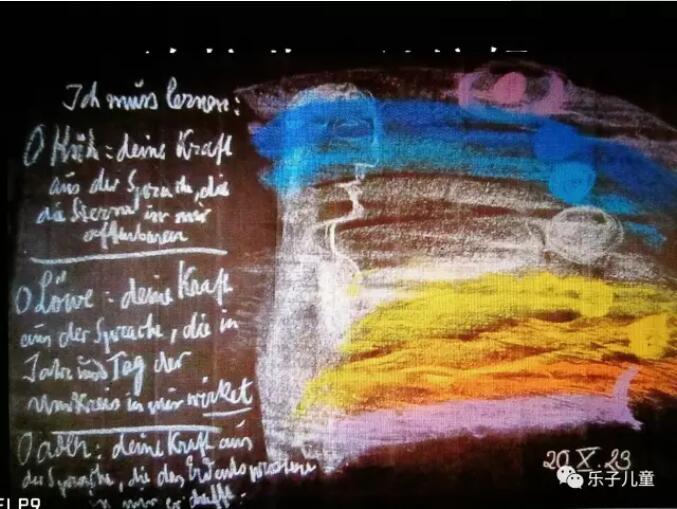 Ich muss lernen:
O Kuh: deine Kraft
aus der Sprache, die
die Sterne in mir
offenbaren
O Löwe: deine Kraft
aus der Sprache, die in
Jahr und Tag der
Umkreis in mir wirket
O Adler: deine Kraft aus
der Sprache, die das
in mir
20 X. 23
乐子儿童
ELP9